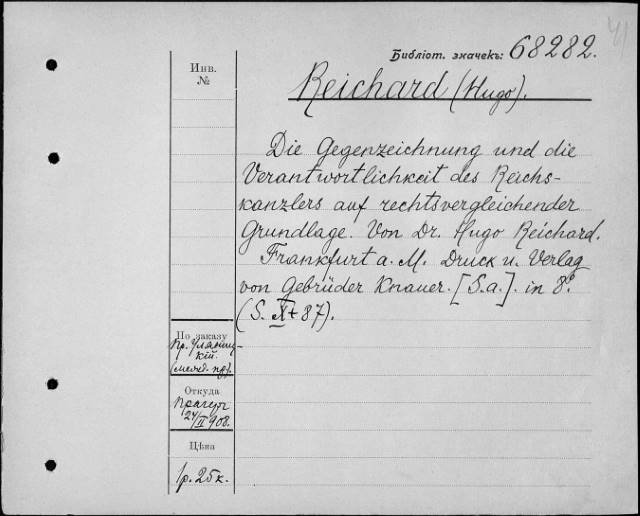 41
Библіот. значекъ: 68282.
Инв.
№
Reichard (Hugo).
Die Gegenzeichnung und die
Verantwortlichkeit des Reichs-
kanzlers auf rechtsvergleichender
Grundlage. Von Dr. Hugo Reichard.
Frankfurt a. M. Druck u. Verlag
von Gebrüder Knauer. [S.a.]. in 8°.
(S. X + 87).
По заказу
Пр. Уляниц-
кій.
Откуда
24/II 908.
Цѣна
1р. 25к.